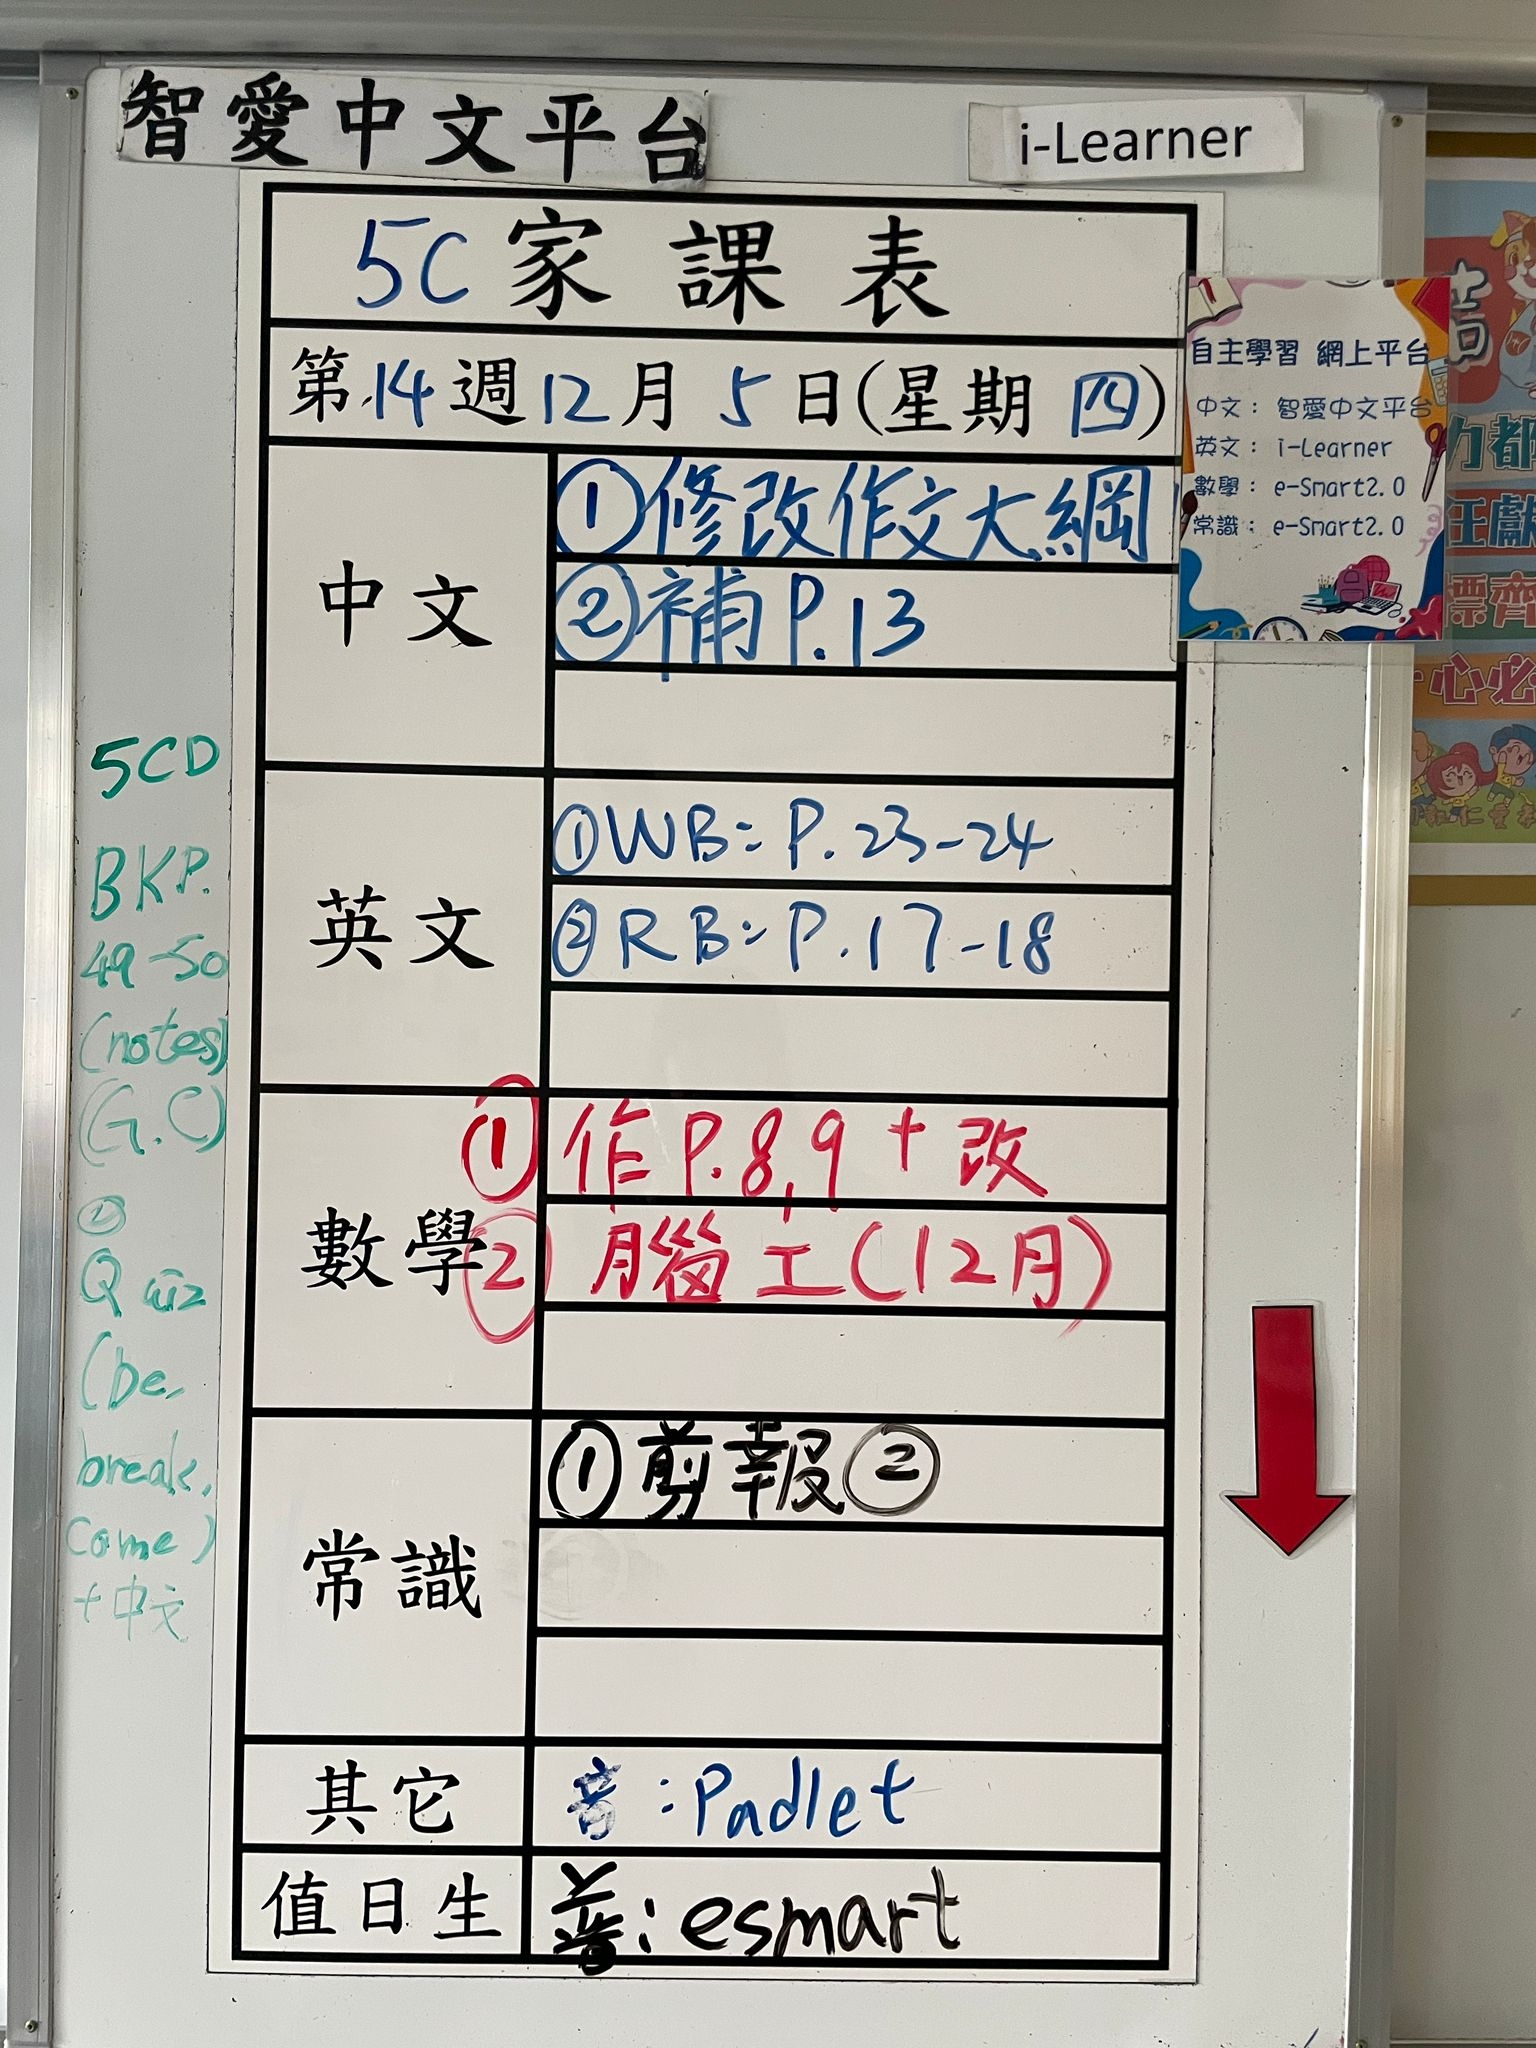 智愛中文平台
i-Learner
5C 家課表
第 14 週 12 月 5 日(星期 四)
中文
① 修改作文大綱
② 補 P.13
英文
① WB: P.23-24
② RB: P.17-18
數學
① 作 P.8,9 + 改
② 腦工(12月)
常識
① 剪報 ②
其它
音:Padlet
值日生
普:esmart
5CD
BKP.
49-50
(notes)
(G.C)
②
Quiz
(be,
break,
come)
+中文
自主學習 網上平台
中文: 智愛中文平台
英文: i-Learner
數學: e-Smart2.0
常識: e-Smart2.0
力都
心必